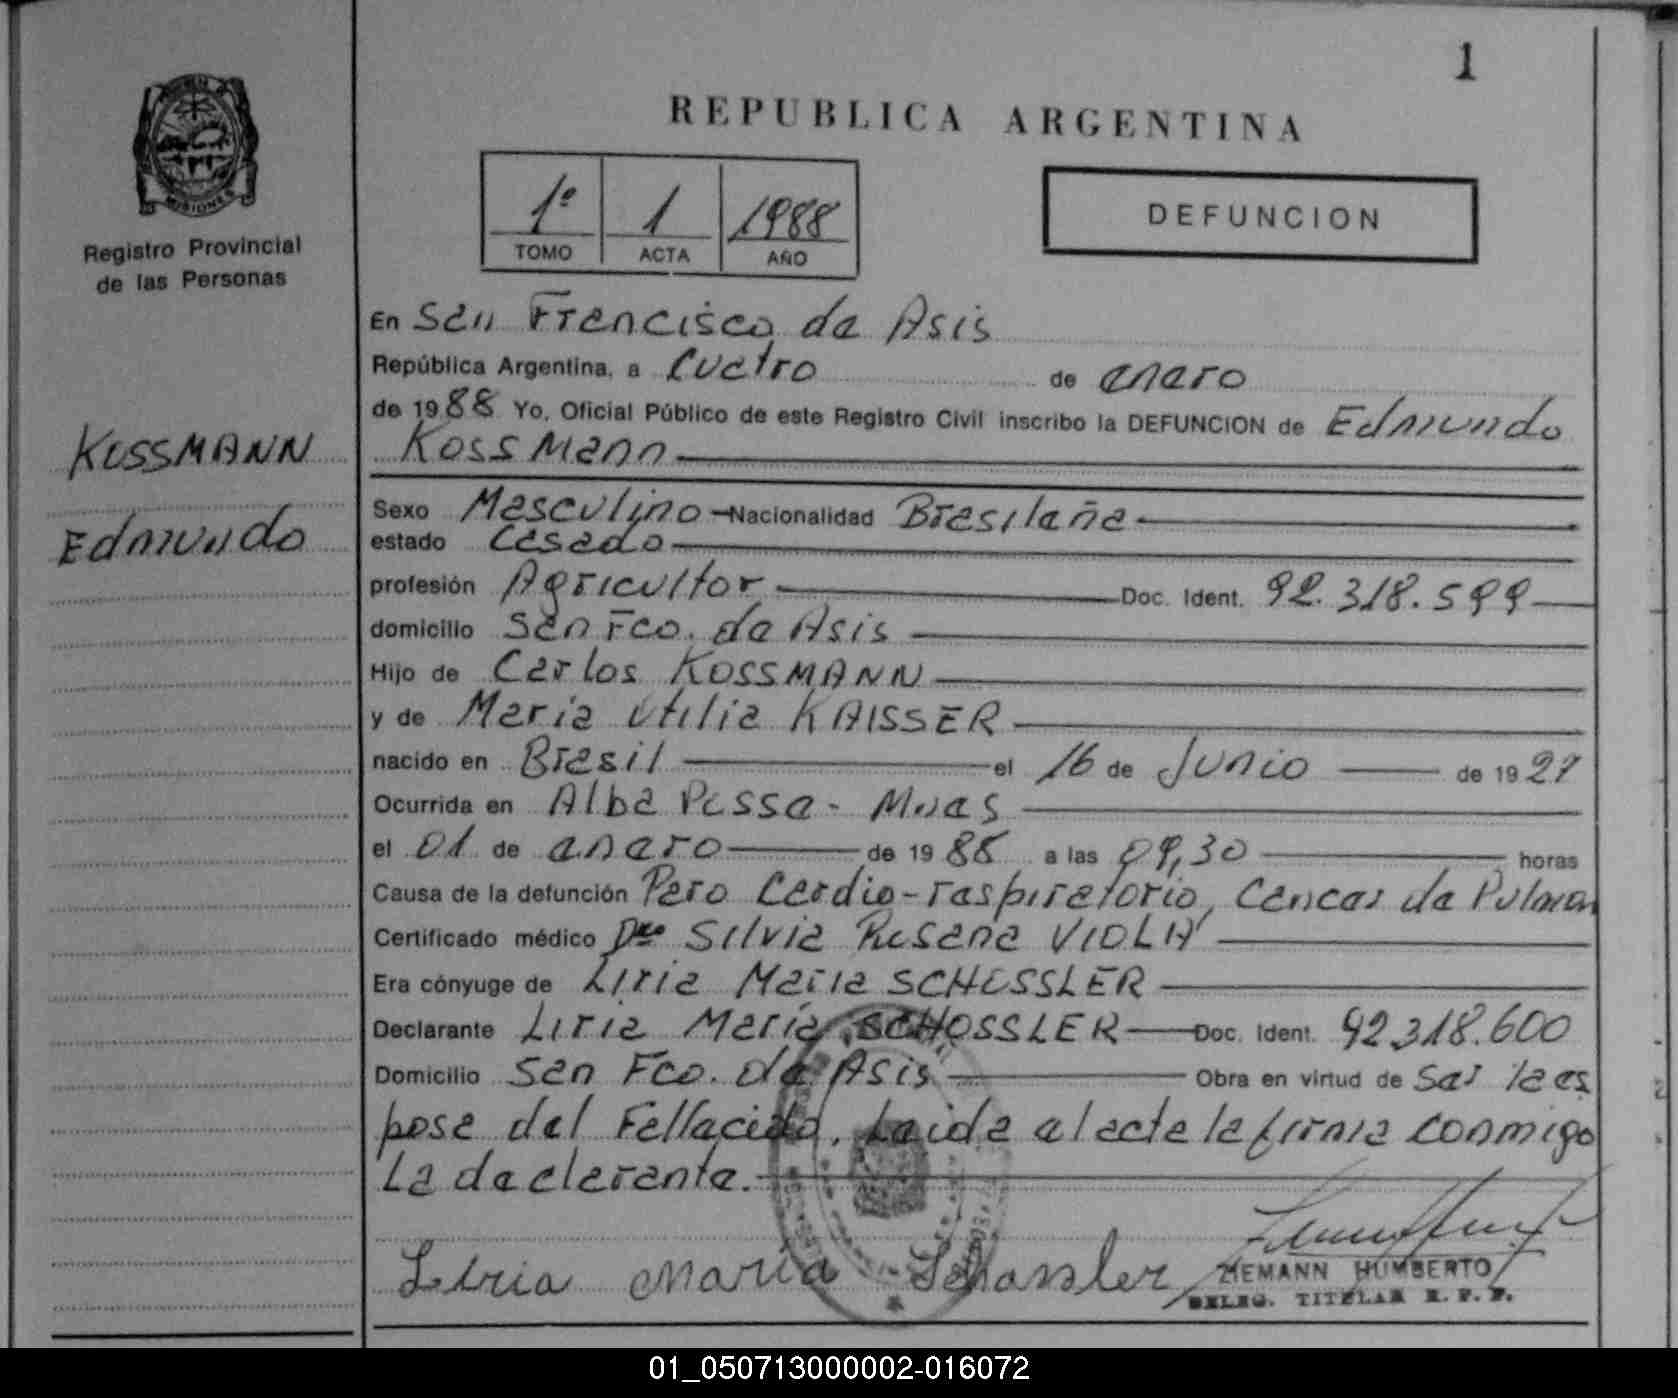 1
REPUBLICA ARGENTINA
MISIONES
Registro Provincial
de las Personas
1º 1 1988
TOMO ACTA AÑO
DEFUNCION
KOSSMANN
Edmundo
En San Francisco de Asis
República Argentina, a Cuatro de enero
de 1988 Yo, Oficial Público de este Registro Civil inscribo la DEFUNCION de Edmundo
Kossmann
Sexo Masculino Nacionalidad Brasilaña
estado Casado
profesión Agricultor Doc. Ident. 92.318.599
domicilio San Fco. de Asis
Hijo de Carlos KOSSMANN
y de María Utilia KAISSER
nacido en Brasil el 16 de Junio de 1927
Ocurrida en Alba Possa - Mnes
el 01 de enero de 1988 a las 09,30 horas
Causa de la defunción Paro Cardio-respiratorio, Cancar de Pulmon
Certificado médico Dra Silvia Rosana VIOLA
Era cónyuge de Liria María SCHOSSLER
Declarante Liria María SCHOSSLER Doc. Ident. 92.318.600
Domicilio San Fco. de Asis Obra en virtud de Ser la es
posa del Fallacido. Leida el acta la firma conmigo
La declarante.
Liria Maria Schossler
ZIEMANN HUMBERTO
DELEG. TITULAR R. P. P.
01_050713000002-016072